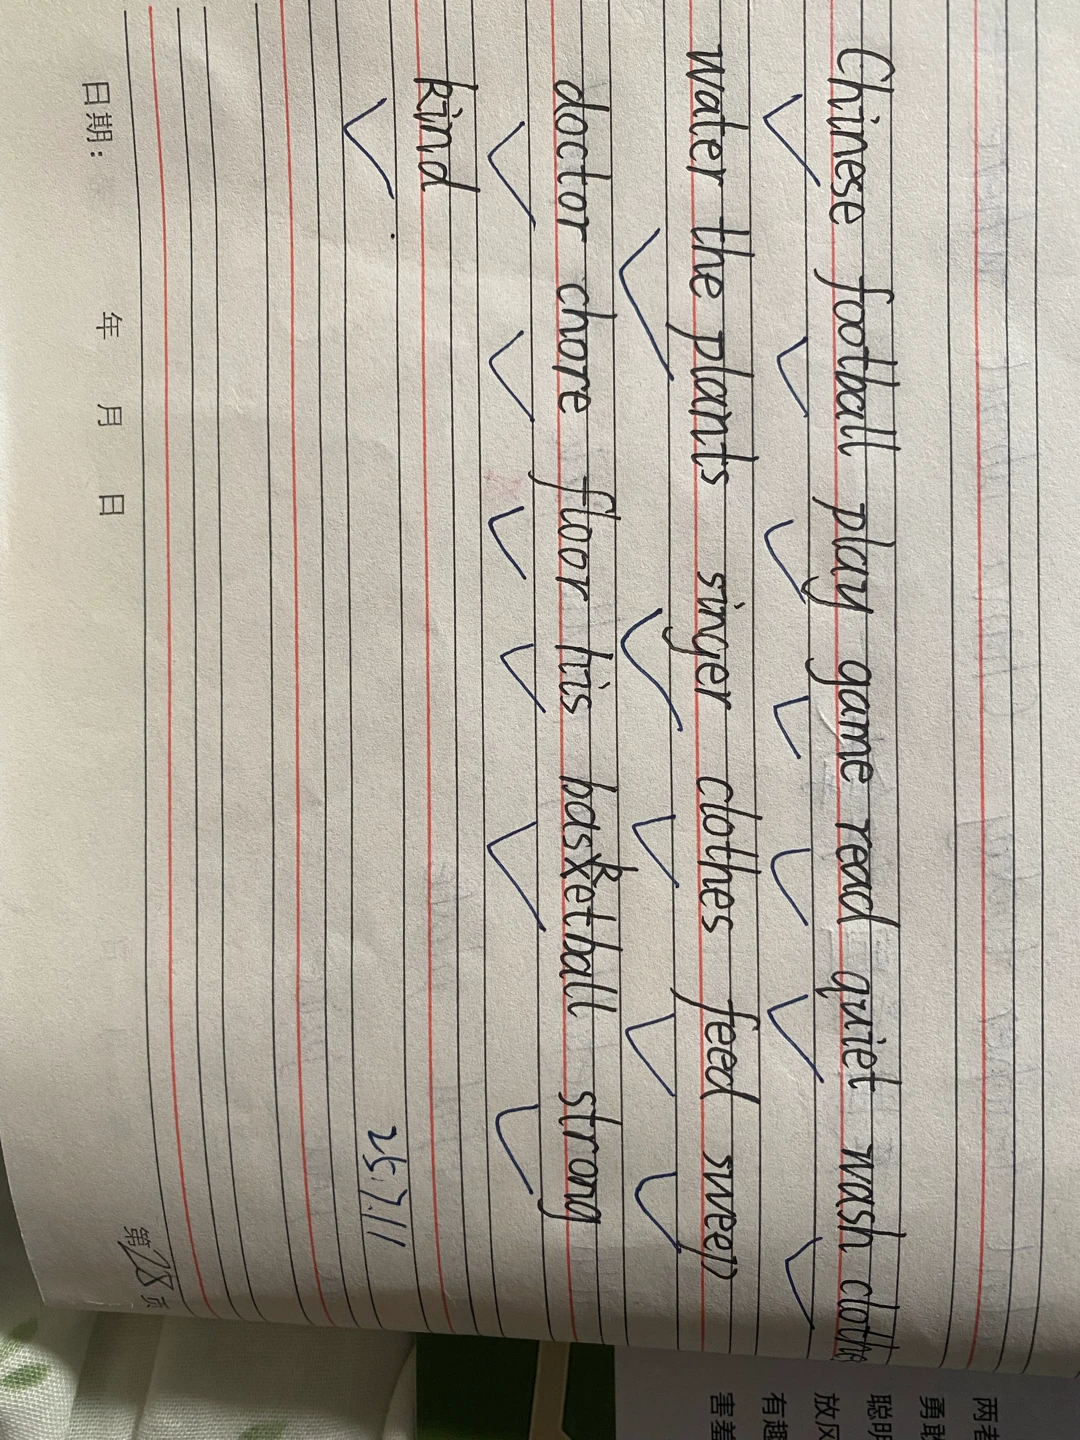 Chinese football play game read quiet wash cloths
water the plants singer clothes feed sweep
doctor chore floor his basketball strong
kind
25.7.11
日期: 年 月 日
第28页
两者
勇敢
聪明
放风
有趣
害羞